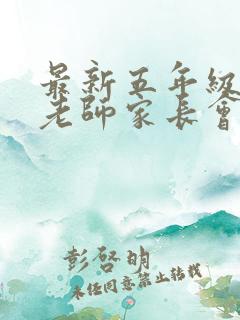 最新五年級
老師家長會
彭啓明
未经同意禁止转载